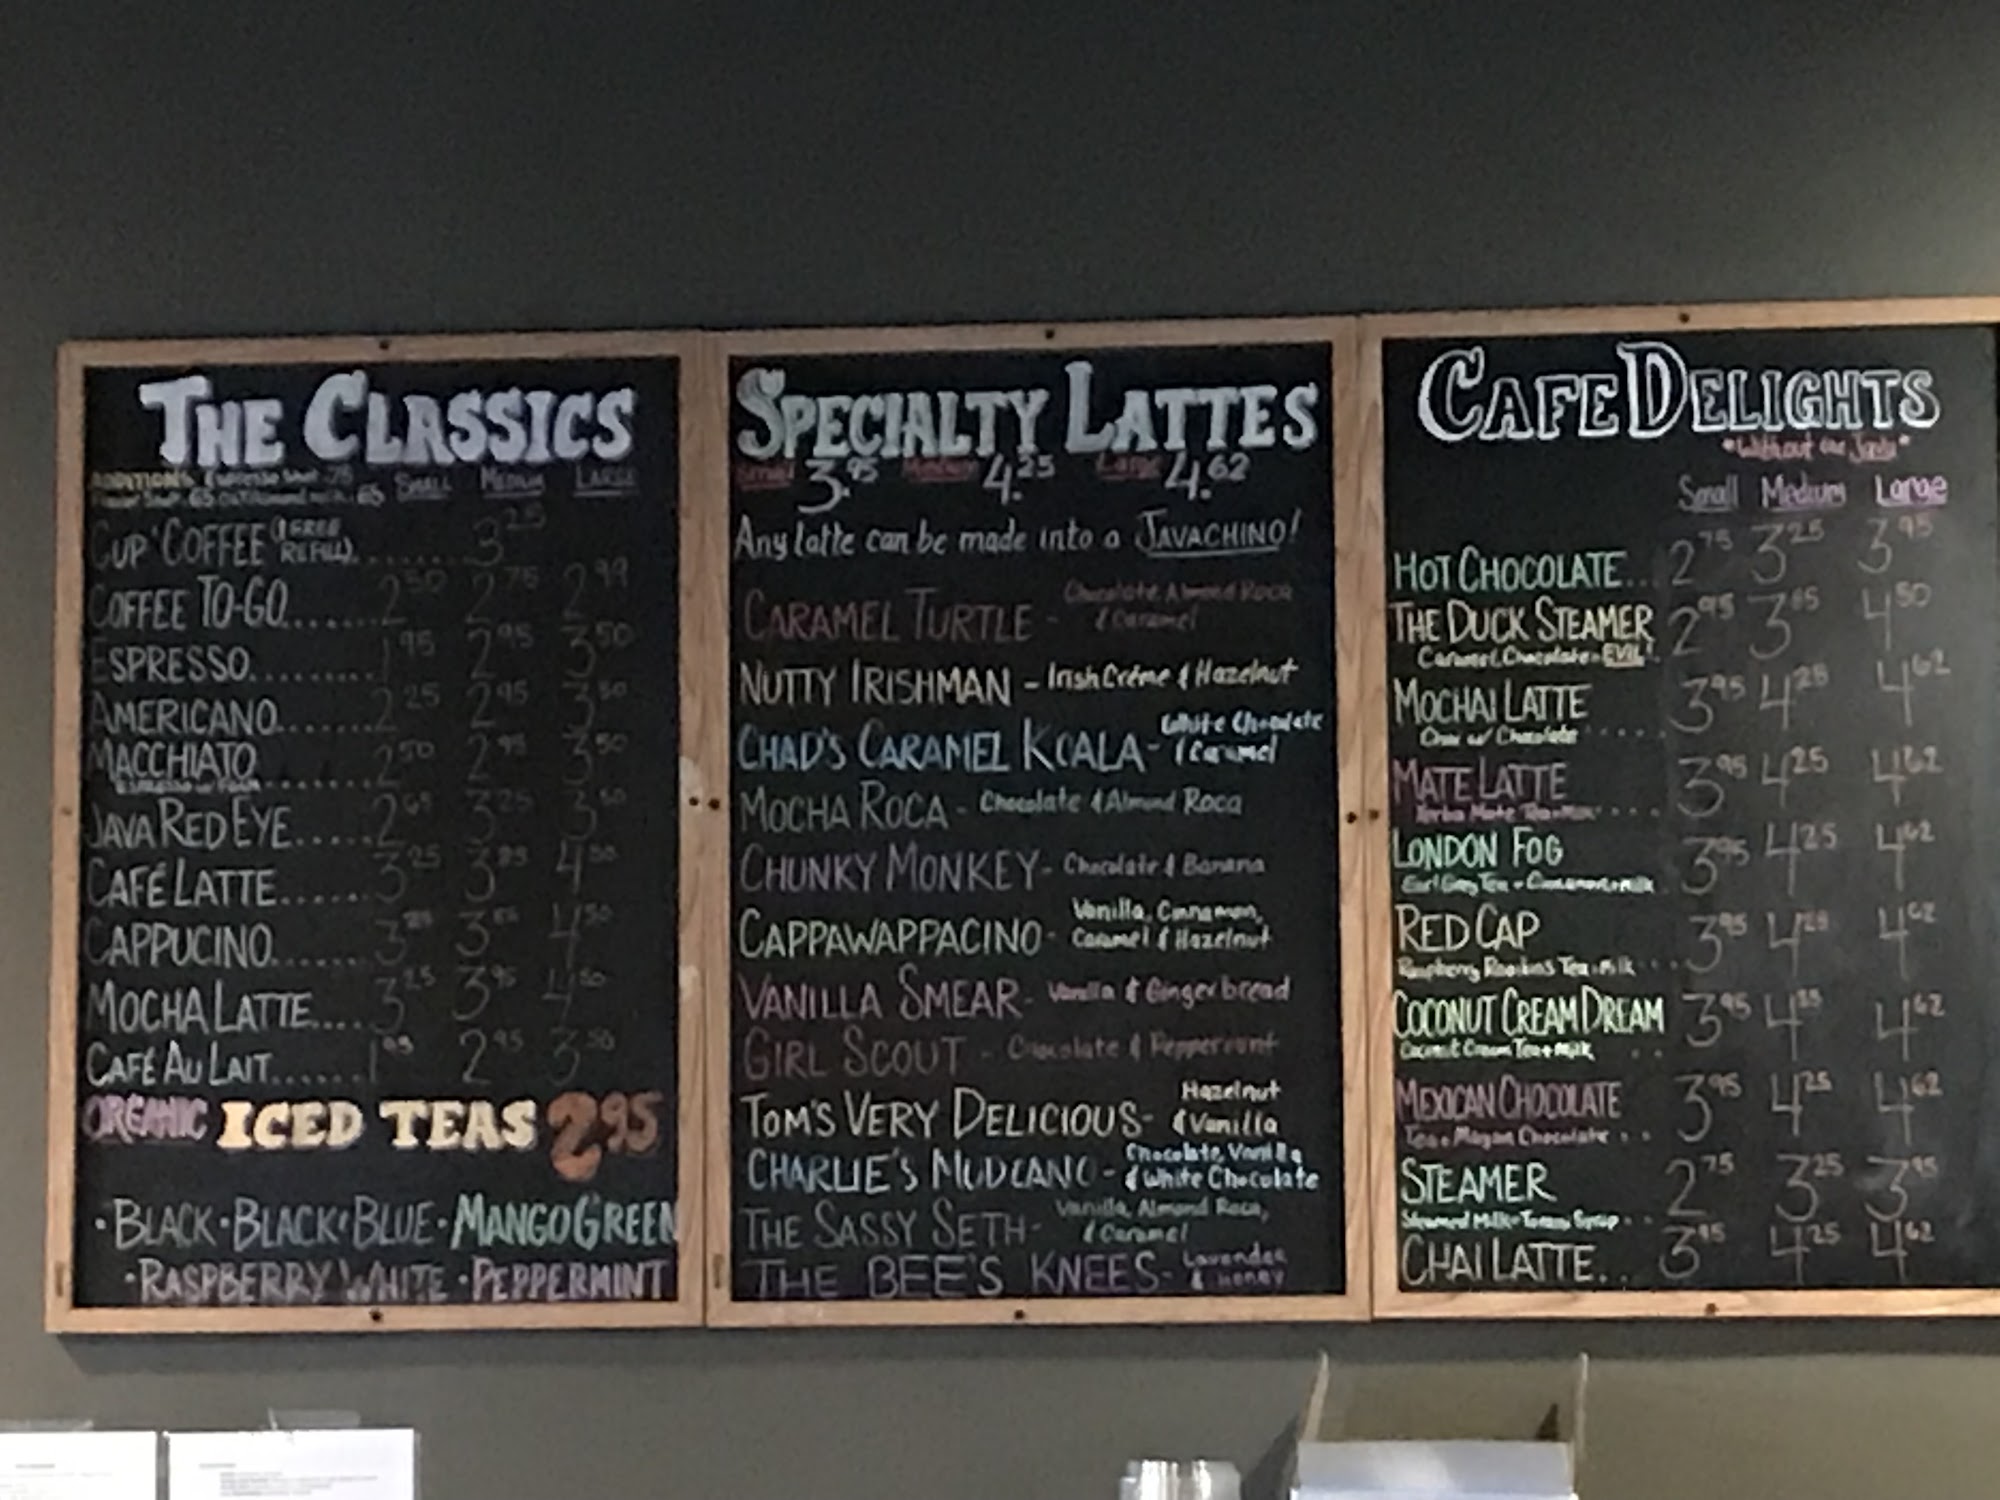 THE CLASSICS
ADDITIONS: Espresso Shot .75
Flavor Shot .65 .65 SMALL MEDIUM LARGE
CUP 'COFFEE (1 FREE REFILL)....... 3.25
COFFEE TO-GO....... 2.50 2.75 2.99
ESPRESSO......... 1.95 2.95 3.50
AMERICANO....... 2.25 2.95 3.50
MACCHIATO....... 2.50 2.95 3.50
JAVA RED EYE..... 2.65 3.25 3.50
CAFÉ LATTE...... 3.25 3.95 4.50
CAPPUCINO....... 3.25 3.95 4.50
MOCHA LATTE..... 3.25 3.95 4.50
CAFÉ AU LAIT....... 1.95 2.95 3.50
ORGANIC ICED TEAS 2.95
• BLACK • BLACK & BLUE • MANGO GREEN
• RASPBERRY WHITE • PEPPERMINT
SPECIALTY LATTES
Small 3.95 Medium 4.25 Large 4.62
Any latte can be made into a JAVACHINO!
CARAMEL TURTLE - Chocolate Almond Roca
& Caramel
NUTTY IRISHMAN - Irish Créme & Hazelnut
CHAD'S CARAMEL KOALA - White Chocolate
& Caramel
MOCHA ROCA - Chocolate & Almond Roca
CHUNKY MONKEY - Chocolate & Banana
CAPPAWAPPACINO - Vanilla, Cinnamon,
Caramel & Hazelnut
VANILLA SMEAR - Vanilla & Gingerbread
GIRL SCOUT - Chocolate & Peppermint
TOM'S VERY DELICIOUS - Hazelnut
& Vanilla
CHARLIE'S MUDCANO - Chocolate, Vanilla
& White Chocolate
THE SASSY SETH - Vanilla, Almond Roca,
& Caramel
THE BEE'S KNEES - Lavender
& Honey
CAFE DELIGHTS
*Without our Java*
Small Medium Large
HOT CHOCOLATE... 2.75 3.25 3.95
THE DUCK STEAMER 2.95 3.65 4.50
Caramel, Chocolate = EVIL!
MOCHAI LATTE 3.95 4.25 4.62
Chai w/ Chocolate .....
MATE LATTE 3.95 4.25 4.62
Yerba Mate Tea + Milk ....
LONDON FOG 3.95 4.25 4.62
Earl Grey Tea + Cinnamon + Milk
RED CAP 3.95 4.25 4.62
Raspberry Rooibos Tea + Milk ...
COCONUT CREAM DREAM 3.95 4.25 4.62
Coconut Cream Tea + Milk ..
MEXICAN CHOCOLATE 3.95 4.25 4.62
Tea + Mayan Chocolate ...
STEAMER 2.75 3.25 3.95
Steamed Milk + Torani Syrup ..
CHAI LATTE... 3.95 4.25 4.62